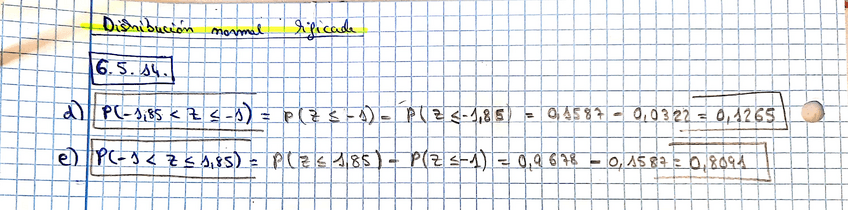 Distribución normal tipificada
6.5.14.
d) P(-1,85 < Z ≤ -1) = P(Z ≤ -1) - P(Z ≤ -1,85) = 0,1587 - 0,0322 = 0,1265
e) P(-1 < Z ≤ 1,85) = P(Z ≤ 1,85) - P(Z ≤ -1) = 0,9678 - 0,1587 = 0,8091